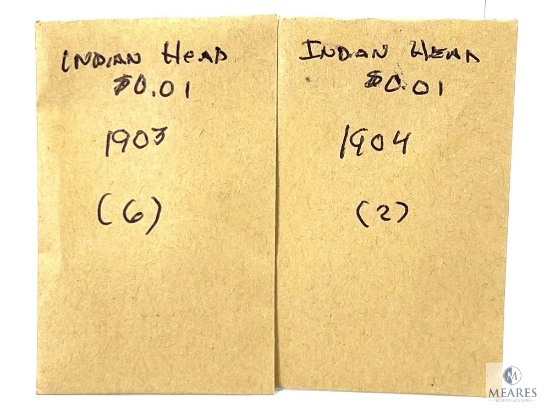 INDIAN HEAD
$0.01
1903
(6)
INDIAN HEAD
$0.01
1904
(2)
M
MEARES